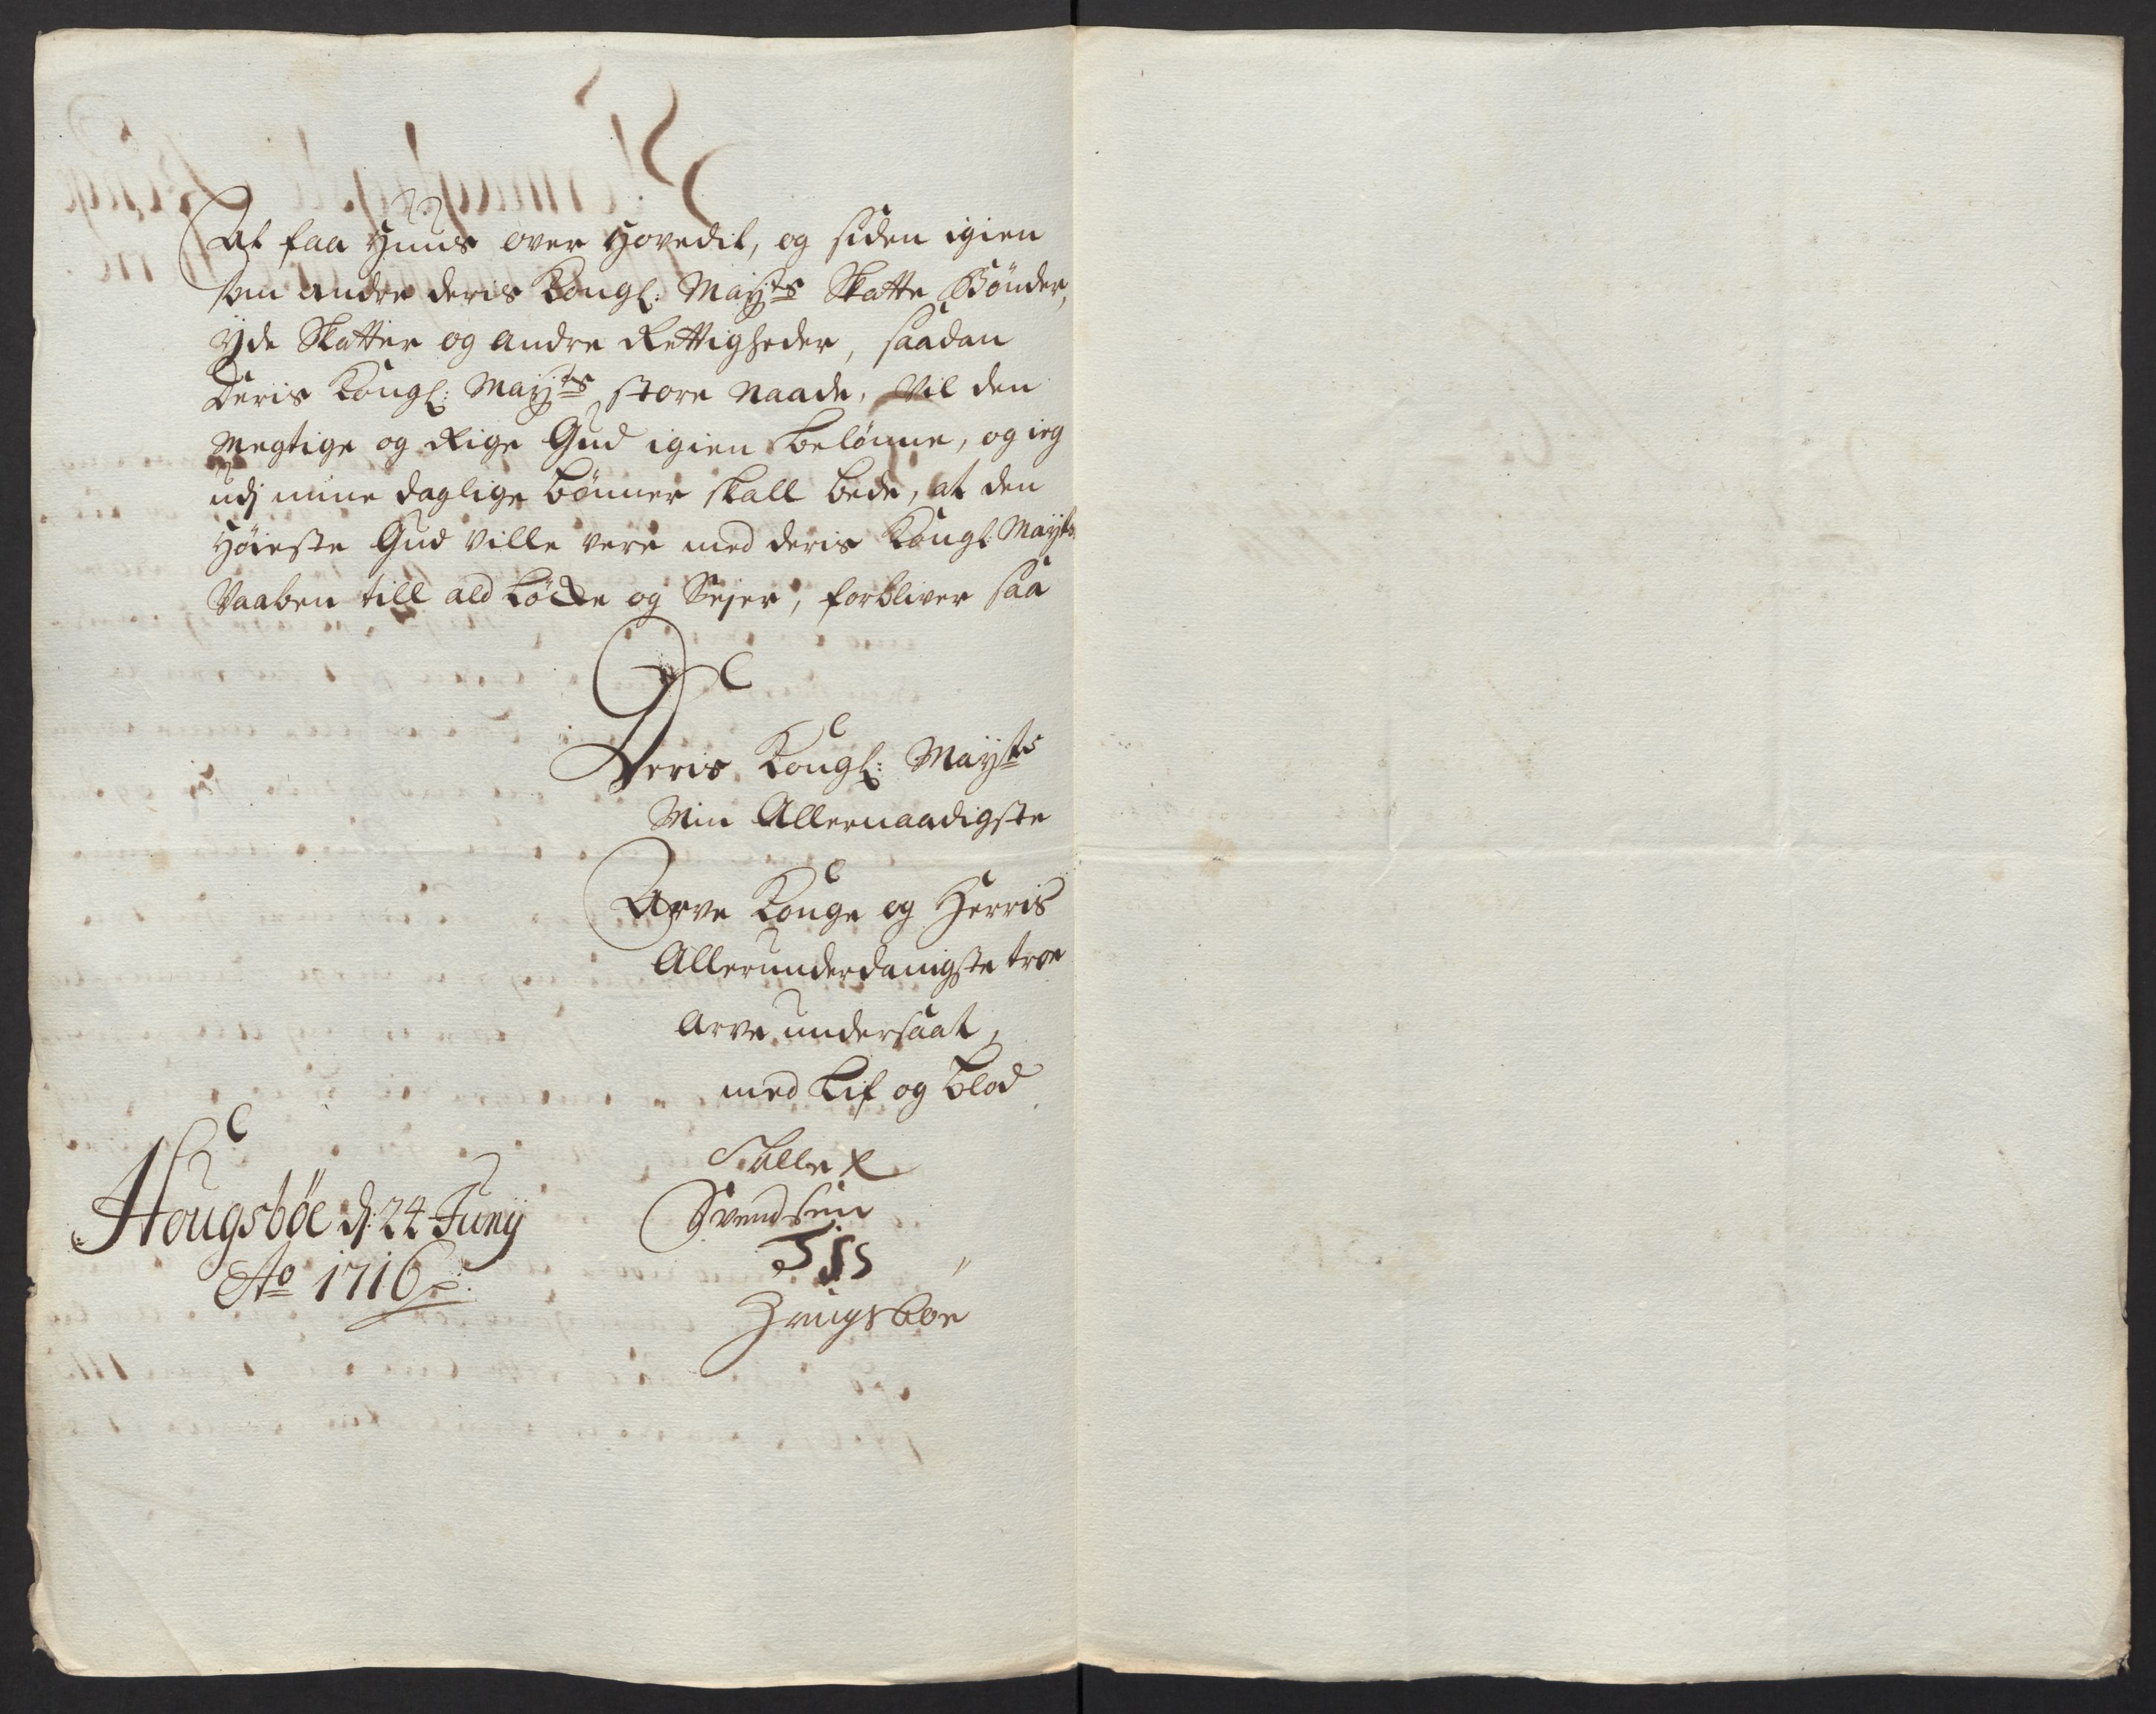 At faa Huus over Hovedit, og siden igien
som andre deris Kongl: Mayts Skatte Bönder,
Yde Skatter og andre Rettigheder, saadan
Deris Kongl: Mayts store Naade, Vil den
Megtige og Rige Gud igien belönne, og ieg
udj mine daglige bönner skall bede, at den
Höieste Gud ville vere med deris Kongl: Mayts
Vaaben till ald Löcke og Sejer, forbliver saa
Deris Kongl: Mayts
Min Allernaadigste
Arve Konge og Herris
Allerunderdanigste troe
Arve undersaat,
med Lif og blod
Svendsen
Hougsböe d: 24 Junij
Ao 1716